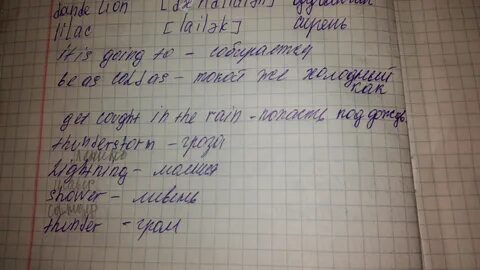 dandelion [dændilaiən] одуванчик
lilac [lailək] сирень
it is going to – собирается
be as cold as – такой же холодный
как
get cought in the rain – попасть под дождь
thunderstorm – гроза
lightning – молния
shower – ливень
thunder – гром